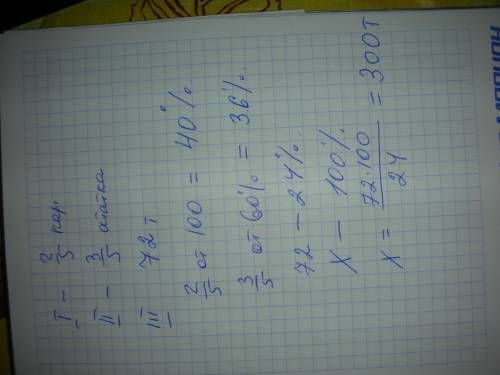 I – 2/5 кар
II – 3/5 остатка
III 72 т
2/5 от 100 = 40%
3/5 от 60% = 36%.
72 – 24%.
X – 100%.
X = 72·100/24 = 300т